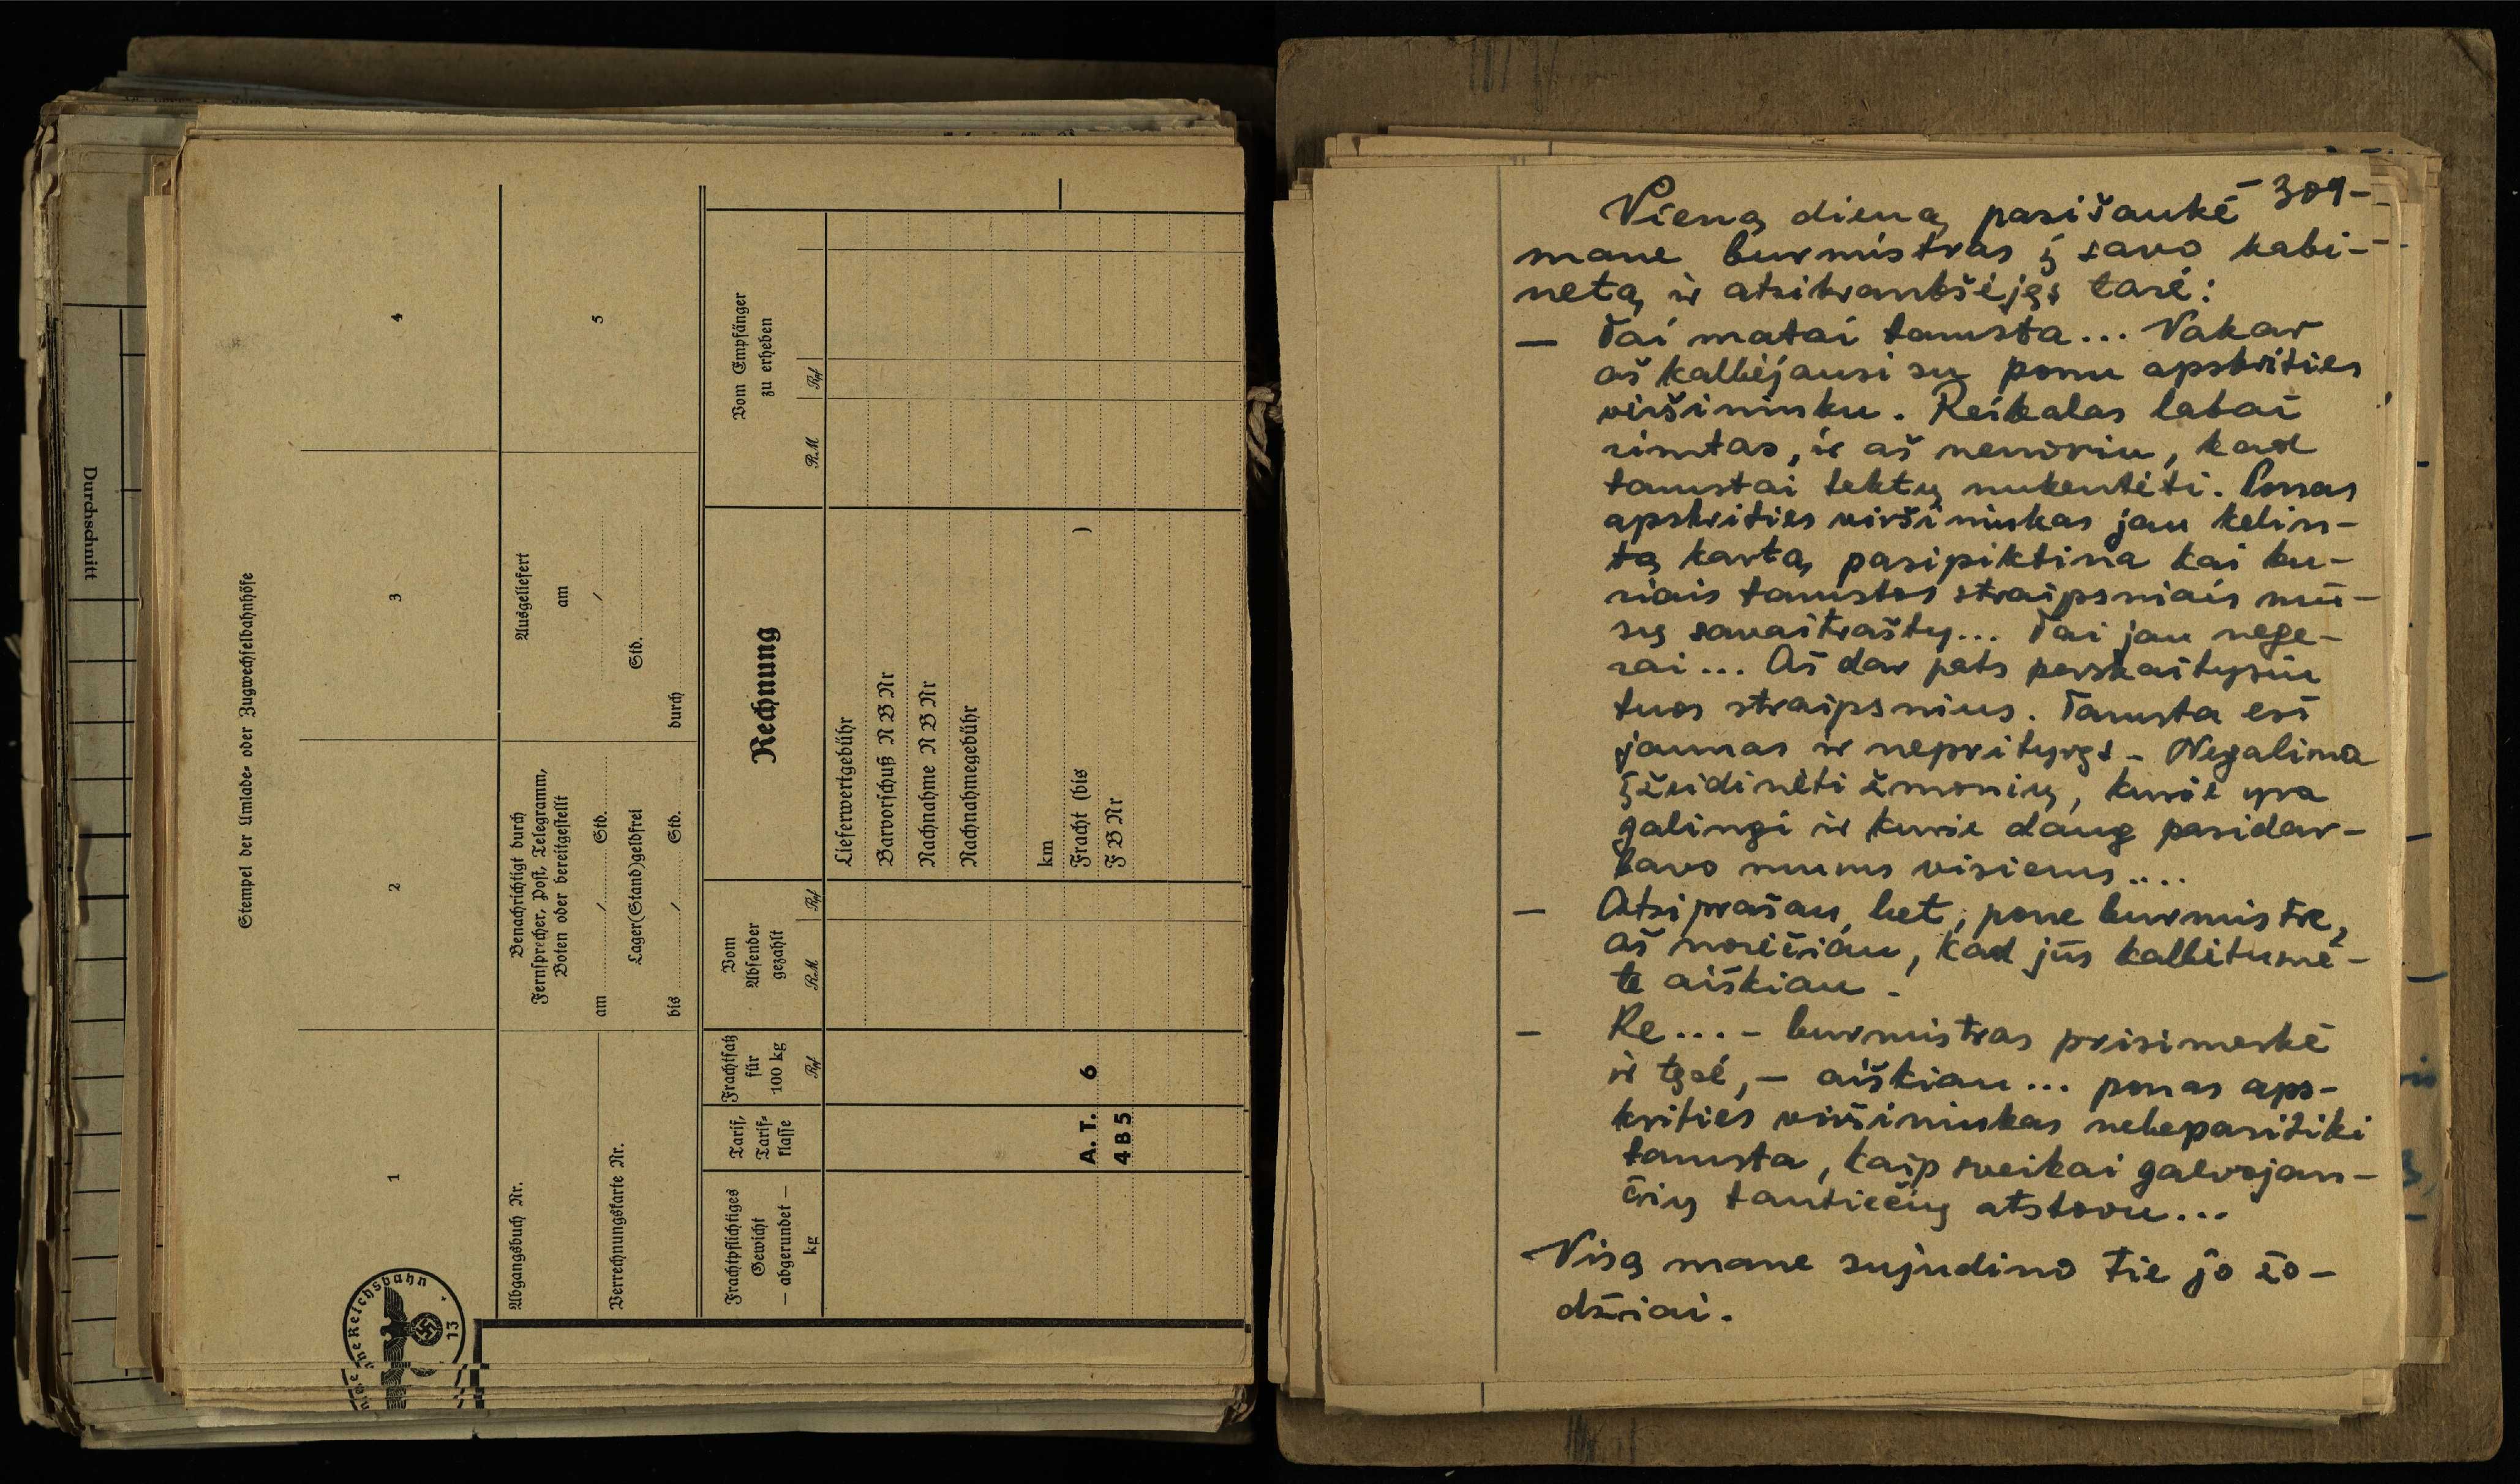 Durchschnitt
Stempel der Umlade- oder Zugwechselbahnhöfe
1
2
3
4
Abgangsbuch Nr.
Verrechnungskarte Nr.
Benachrichtigt durch
Fernsprecher, Post, Telegramm,
Boten oder bereitgestellt
am / Std.
Lager(Stand)geldfrei
bis / Std.
Ausgeliefert
am
/
Std.
durch
5
Frachtpflichtiges
Gewicht
— abgerundet —
kg
Tarif,
Tarif-
klasse
Frachtsatz
für
100 kg
Rpf
Vom
Absender
gezahlt
RM Rpf
Rechnung
Vom Empfänger
zu erheben
RM Rpf
Lieferwertgebühr
Barvorschuß N B Nr
Nachnahme N B Nr
Nachnahmegebühr
km
A. T. 6 Fracht (bis )
4 B 5 F B Nr
Reichsbahn
13
- 309 -
Vieną dieną pasišaukė
mane burmistras į savo kabi-
netą ir atsikrankšėjęs tarė:
— Tai matai tamsta... Vakar
aš kalbėjausi su ponu apskrities
viršininku. Reikalas labai
rimtas, ir aš nenoriu, kad
tamstai tektų nukentėti. Ponas
apskrities viršininkas jau kelin-
tą kartą pasipiktina kai ku-
riais tamstos straipsniais mū-
sų savaitrašty... Tai jau nege-
rai... Aš dar pats perskaitysiu
tuos straipsnius. Tamsta esi
jaunas ir neprityręs. Negalima
įžeidinėti žmonių, kurie yra
galingi ir kurie daug pasidar-
bavo mums visiems....
— Atsiprašau, bet, pone burmistre,
aš norėčiau, kad jūs kalbėtumė-
te aiškiau.
— Ke... - burmistras prisimerkė
ir tęsė, - aiškiau... ponas aps-
krities viršininkas nebepasitiki
tamsta, kaip sveikai galvojan-
čių tautiečių atstovu...
Visą mane sujudino tie jo žo-
džiai.